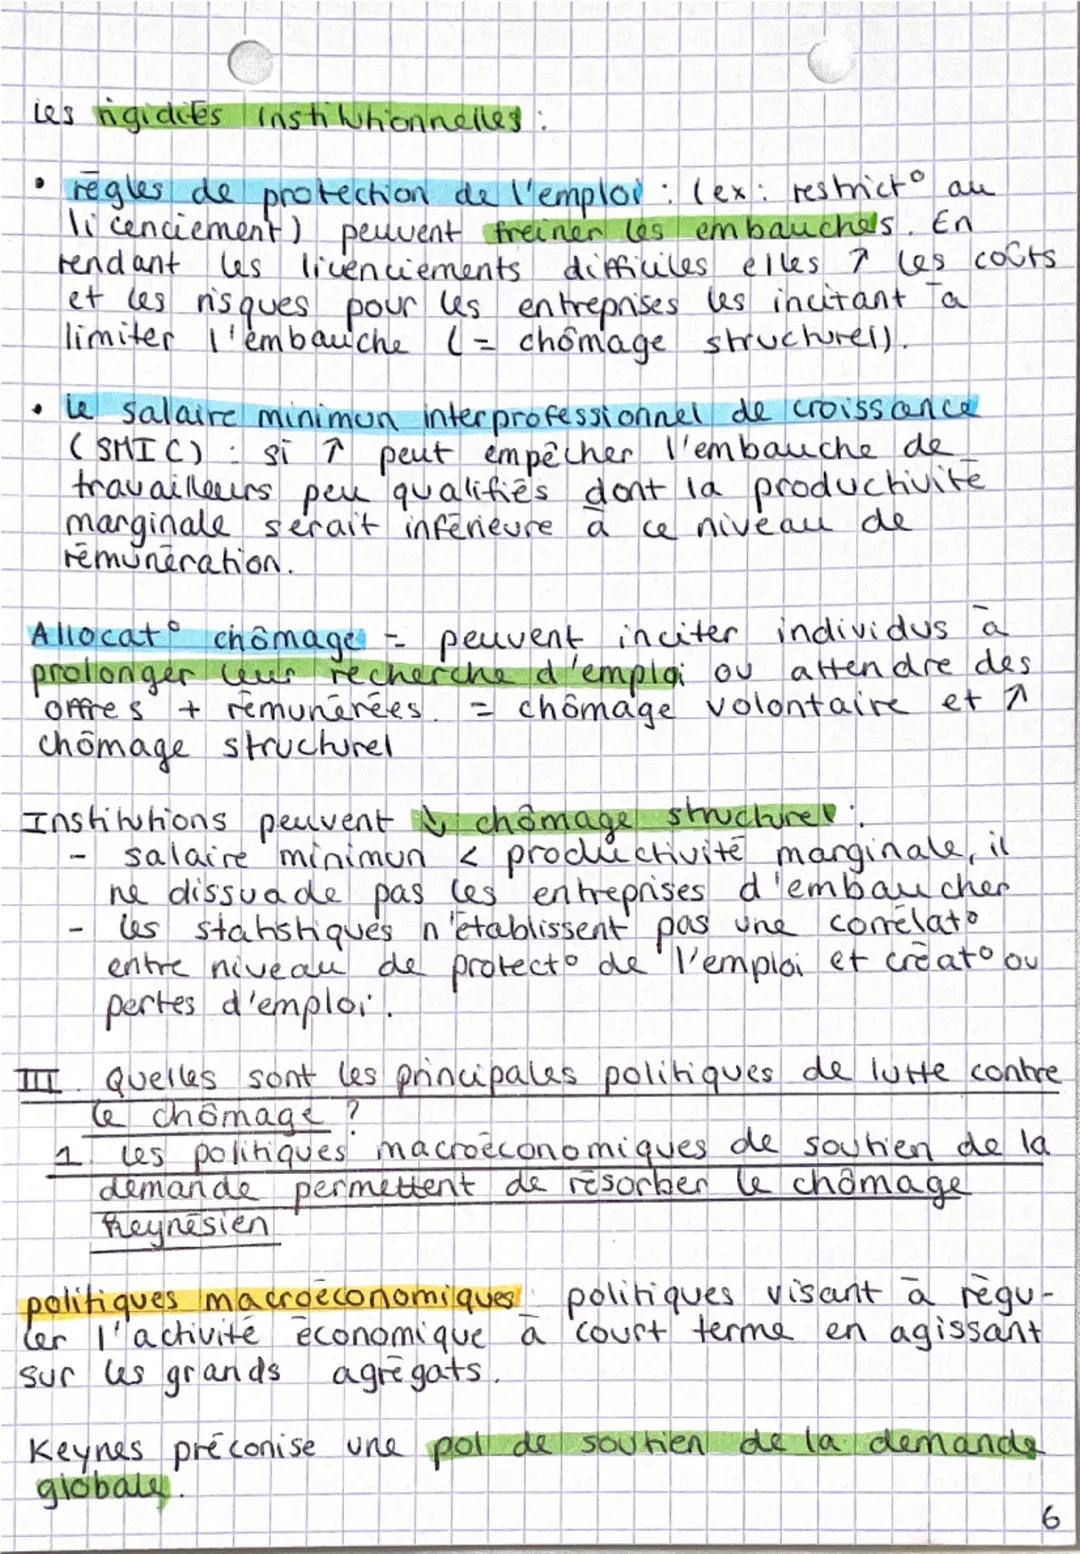 Les rigidités institutionnelles :
• règles de protection de l'emploi : (ex : restrict° au
licenciement) peuvent freiner les embauches. En
rendant les licenciements difficiles elles ↗ les coûts
et les risques pour les entreprises les incitant à
limiter l'embauche (= chômage structurel).
• le salaire minimun interprofessionnel de croissance
(SMIC) : si ↑ peut empêcher l'embauche de
travailleurs peu qualifiés dont la productivité
marginale serait inférieure à ce niveau de
rémunération.
Allocat° chômage = peuvent inciter individus à
prolonger leur recherche d'emploi ou attendre des
offres + rémunérées. = chômage volontaire et ↗
chômage structurel
Institutions peuvent ↓ chômage structurel :
- salaire minimun < productivité marginale, il
ne dissuade pas les entreprises d'embaucher
- les statistiques n'établissent pas une corrélat°
entre niveau de protect° de l'emploi et créat° ou
pertes d'emploi.
III. Quelles sont les principales politiques de lutte contre
le chômage ?
1. Les politiques macroéconomiques de soutien de la
demande permettent de résorber le chômage
Keynésien
politiques macroéconomiques : politiques visant à régu-
ler l'activité économique à court terme en agissant
sur les grands agrégats.
Keynes préconise une pol de soutien de la demande
globale.
6